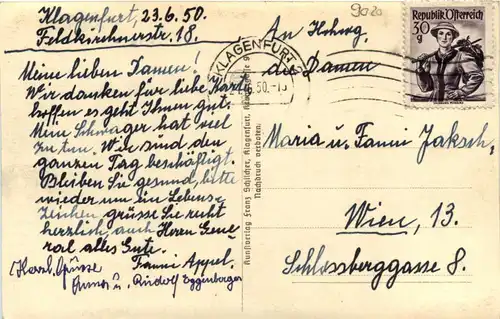 Klagenfurt, 23.6.50.
Feldkirchnerstr. 18.
Meine lieben Damen!
Wir danken für liebe Karte
hoffen es geht Ihnen gut.
Mein Schwager hat viel
zu tun. Wir sind den
ganzen Tag beschäftigt.
Bleiben Sie gesund, bitte
wieder um ein Lebens-
zeichen grüsse Sie recht
herzlich, auch Herrn Gene-
ral alles Gute.
Fanni Appel.
Herzl. Grüsse
u. Rudolf Eggenberger
Kunstverlag Franz Schlicher, Klagenfurt,
Nachdruck verboten.
9020
KLAGENFURT 2
50.
Republik Österreich
30
g
An Hohwg.
die Damen
Maria u. Fanni Jaksch,
Wien, 13.
Schlossberggasse 8.